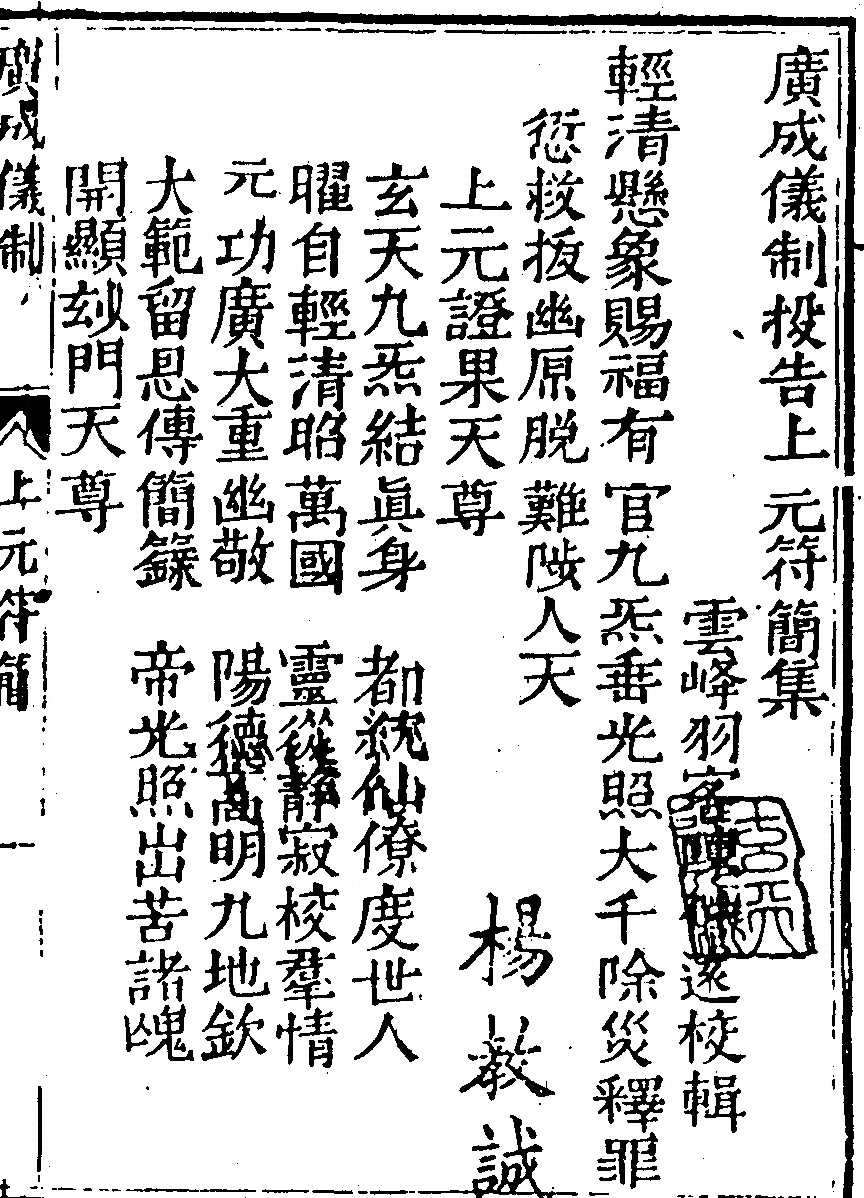 廣成儀制投告上元符簡集
雲峰羽客陳仲遠校輯
輕清懸象賜福有官九炁垂光照大千除災釋罪
愆救拔幽原脫難陟人天
上元證果天尊
楊教誠
玄天九炁結眞身 都統仙僚度世人
曜自輕清昭萬國 靈從靜寂校羣情
元功廣大重幽敬 陽德高明九地欽
大範留恩傳簡籙 帝光照出苦諸魂
開顯玅門天尊
廣成儀制
上元符簡